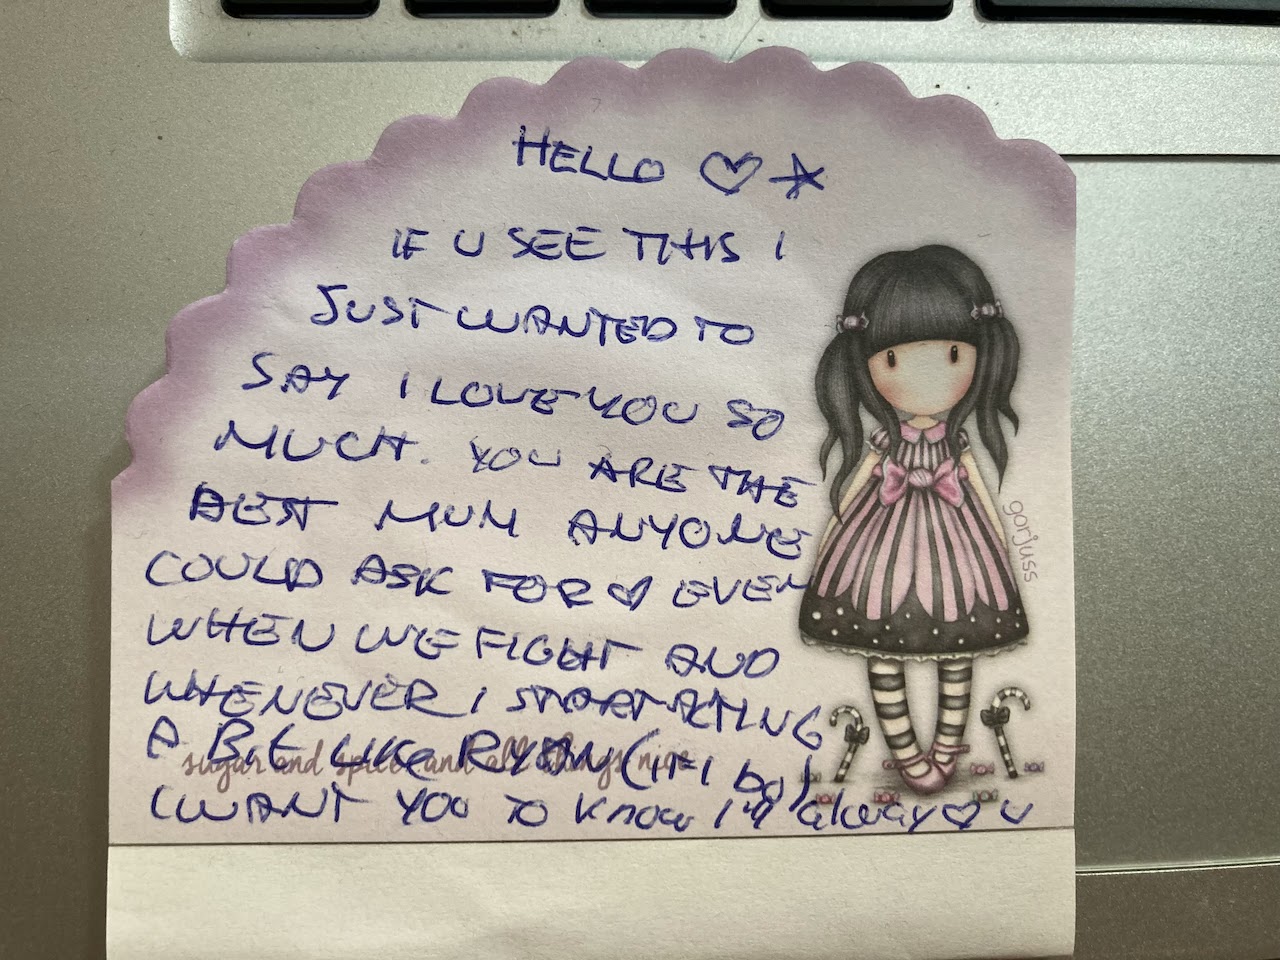 HELLO ♡☆
IF U SEE THIS I
JUST WANTED TO
SAY I LOVE YOU SO
MUCH. YOU ARE THE
BEST MUM ANYONE
COULD ASK FOR ♡ EVEN
WHEN WE FIGHT AND
WHENEVER I START ACTING
A Bit LIKE RYAN (if I do)
I WANT YOU TO know I'll always ♡ U
sugar and spice and all things nice
gorjuss